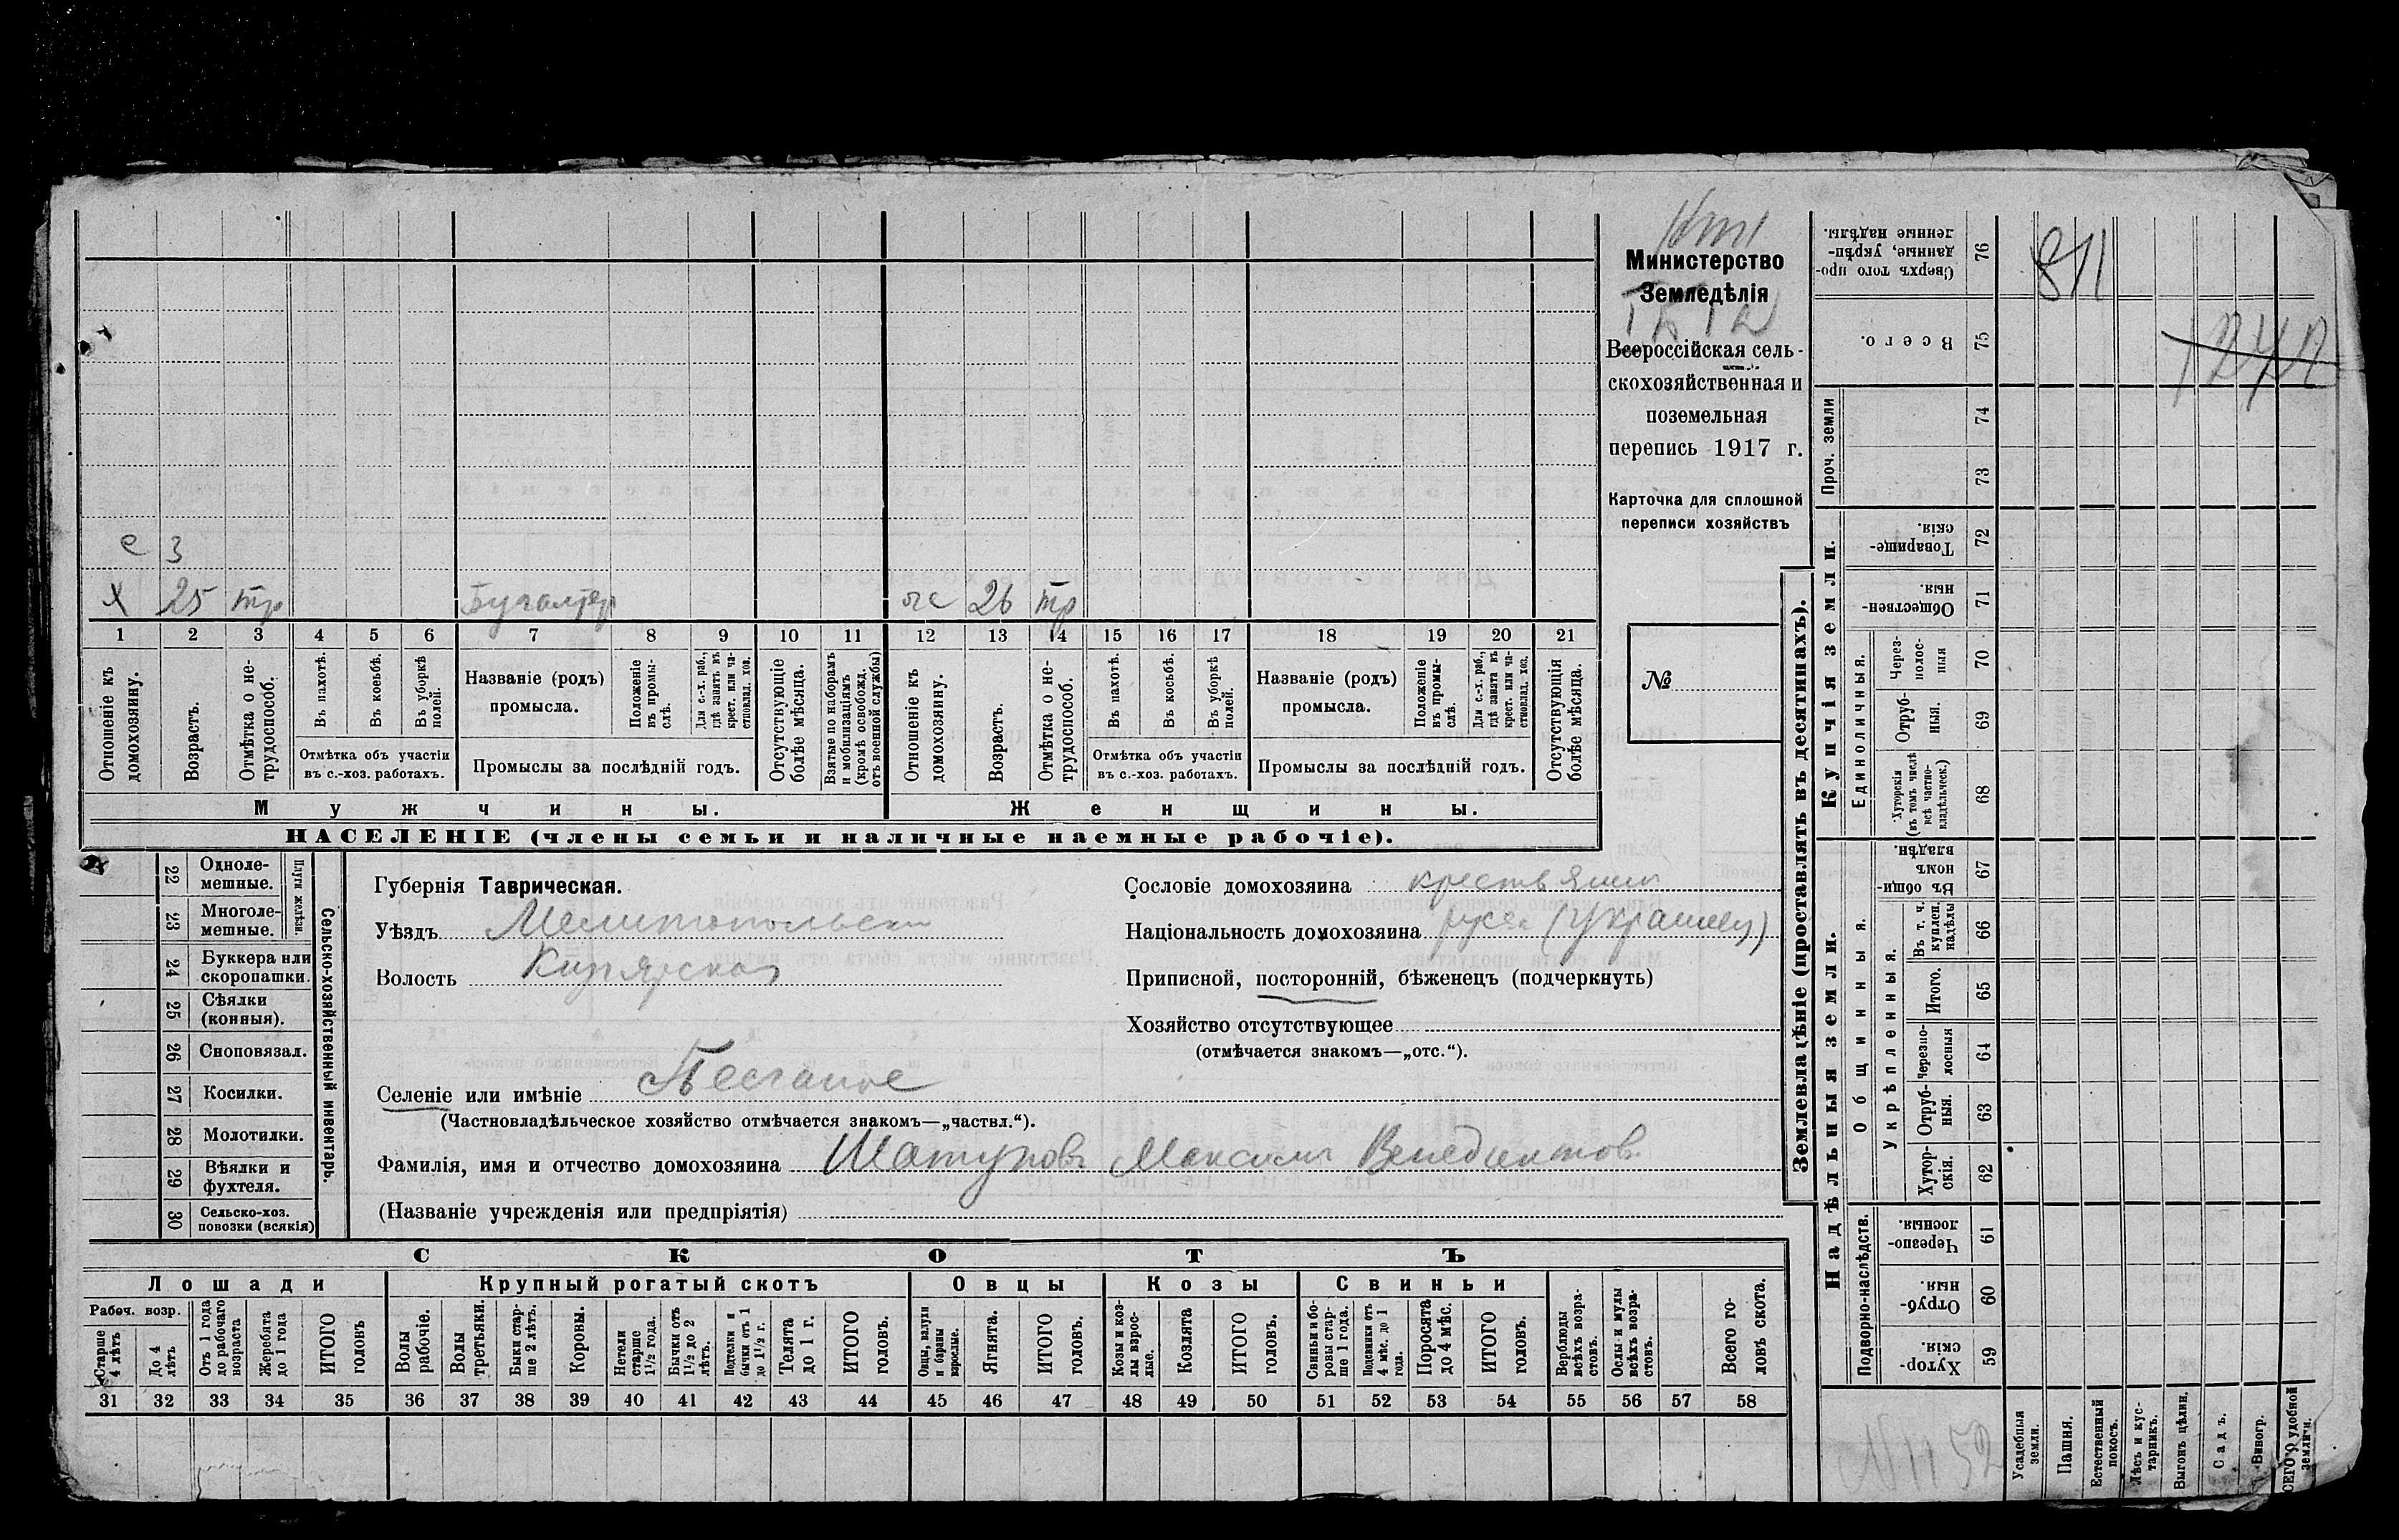 Министерство
Земледѣлія
Всероссійская сель-
скохозяйственная и
поземельная
перепись 1917 г.
Карточка для сплошной
переписи хозяйствъ
№
е 3
х 25 тр Бухгалтер ж 26 тр
1 2 3 4 5 6 7 8 9 10 11 12 13 14 15 16 17 18 19 20 21
Отношеніе къ домохозяину.
Возрастъ.
Отмѣтка о не-трудоспособ.
Въ пахотѣ.
Въ косьбѣ.
Въ уборкѣ полей.
Отмѣтка объ участіи
въ с.-хоз. работахъ.
Названіе (родъ)
промысла.
Положеніе въ промы-слѣ.
Для с.-х. раб., гдѣ занятъ въ крест. или ча-стновлад. хоз.
Промыслы за послѣдній годъ.
Отсутствующіе болѣе мѣсяца.
Взятые по наборамъ и мобилизаціямъ (кромѣ освобожд. отъ военной службы)
Отношеніе къ домохозяину.
Возрастъ.
Отмѣтка о не-трудоспособ.
Въ пахотѣ.
Въ косьбѣ.
Въ уборкѣ полей.
Отмѣтка объ участіи
въ с.-хоз. работахъ.
Названіе (родъ)
промысла.
Положеніе въ промы-слѣ.
Для с.-х. раб., гдѣ занята въ крест. или ча-стновлад. хоз.
Промыслы за послѣдній годъ.
Отсутствующія болѣе мѣсяца.
Мужчины. Женщины.
НАСЕЛЕНІЕ (члены семьи и наличные наемные рабочіе).
Сельско-хозяйственный инвентарь.
Плуги желѣзн.
22 Одноле-мешные.
23 Многоле-мешные.
24 Буккера или скоропашки.
25 Сѣялки (конныя).
26 Сноповязал.
27 Косилки.
28 Молотилки.
29 Вѣялки и фухтеля.
30 Сельско-хоз. повозки (всякія)
Губернія Таврическая.
Уѣздъ Мелитопольск
Волость
Селеніе или имѣніе Песчаное
(Частновладѣльческое хозяйство отмѣчается знакомъ—„частвл.“).
Фамилія, имя и отчество домохозяина Шатуновъ Максимъ Венедиктов
(Названіе учрежденія или предпріятія)
Сословіе домохозяина крестьянин
Національность домохозяина русск (украинец)
Приписной, посторонній, бѣженецъ (подчеркнуть)
Хозяйство отсутствующее
(отмѣчается знакомъ—„отс.“).
СКОТЪ
Лошади Крупный рогатый скотъ Овцы Козы Свиньи
Рабоч. возр.
Старше 4 лѣтъ
До 4 лѣтъ
Отъ 1 года до рабочаго возраста
Жеребята до 1 года
ИТОГО головъ
Волы рабочіе.
Волы третьяки.
Быки стар-ше 2 лѣтъ.
Коровы.
Нетели старше 1½ года.
Бычки отъ 1½ до 2 лѣтъ.
Подтелки и бычки отъ 1 до 1½ г.
Телята до 1 г.
ИТОГО головъ.
Овцы, валухи и бараны взрослые.
Ягнята.
ИТОГО головъ.
Козы и коз-лы взрос-лые.
Козлята
ИТОГО головъ.
Свиньи и бо-ровы стар-ше 1 года.
Подсвинки отъ 4 мѣс. до 1 года.
Поросята до 4 мѣс.
ИТОГО головъ.
Верблюды всѣхъ возра-стовъ.
Ослы и мулы всѣхъ возра-стовъ.
Всего го-ловъ скота.
31 32 33 34 35 36 37 38 39 40 41 42 43 44 45 46 47 48 49 50 51 52 53 54 55 56 57 58
Землевладѣніе (проставлять въ десятинахъ).
Купчія земли.
Надѣльныя земли.
76 Сверхъ того про-данные, укрѣп-ленные надѣлы.
811
75 Всего.
Проч. земли
74
73
72 Товарище-скія.
71 Обществен-ныя.
Единоличныя.
70 Через-полос-ныя
69 Отруб-ныя.
68 Хуторскія (въ томъ числѣ всѣ частно-владѣльческ.)
Общинныя.
67 Въ общи-номъ владѣн.
Укрѣпленныя.
66 Въ т. ч. куплен. надѣлы
65 Итого.
64 Черезпо-лосныя
63 Отруб-ныя.
62 Хутор-скія.
Подворно-наслѣдств.
61 Черезпо-лосныя.
60 Отруб-ныя.
59 Хутор-скія.
Усадебныя земли.
Пашня.
Естественный покосъ.
Лѣсъ и кус-тарникъ.
Выгонъ цѣлин.
Садъ.
Виногр.
ВСЕГО удобной земли.
N 1152